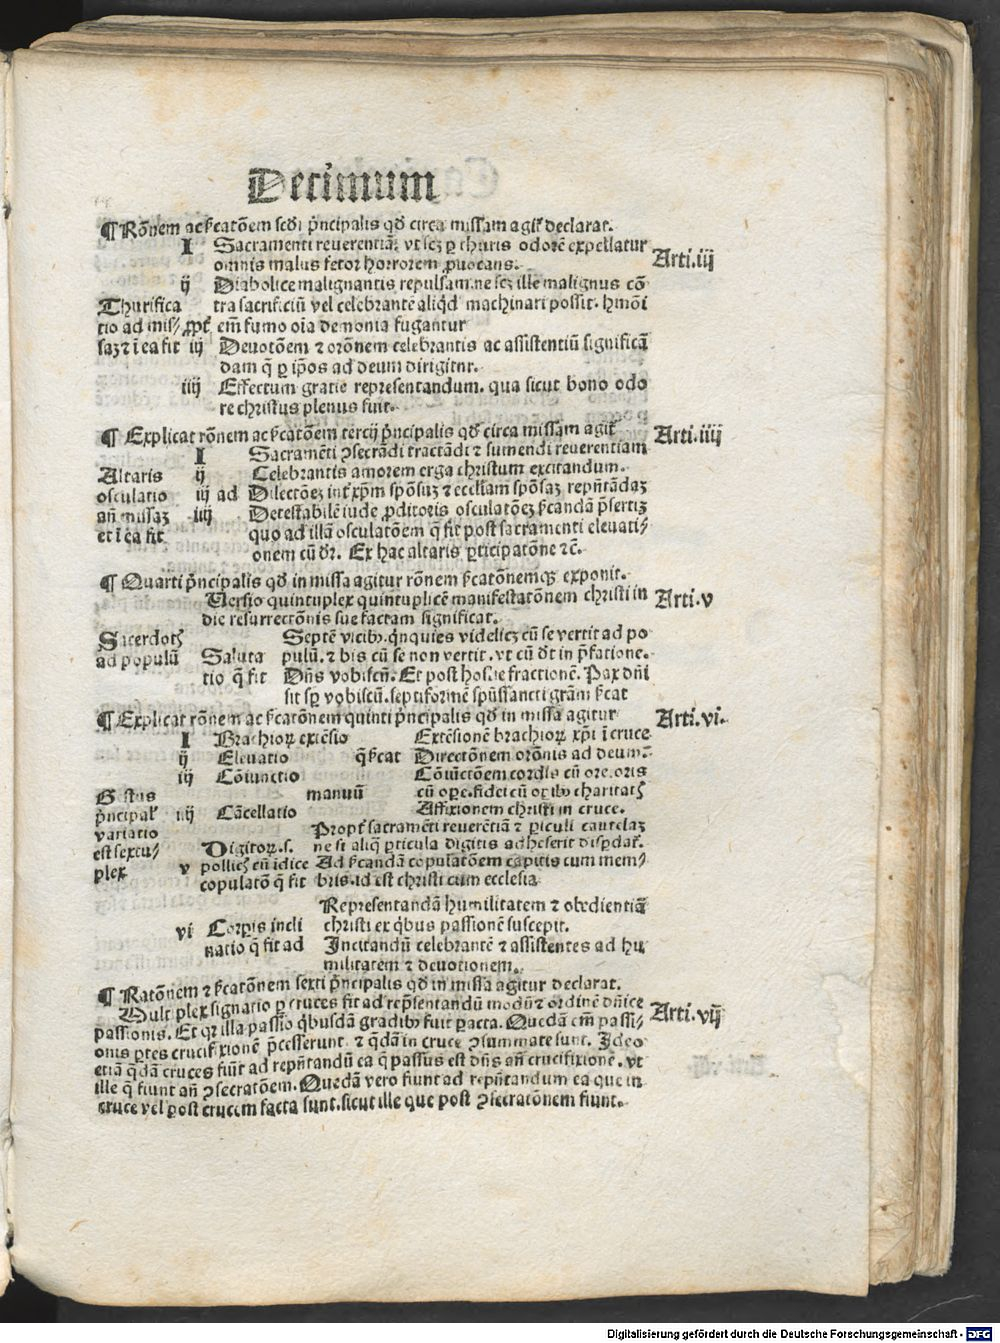 Decimum
¶ Rõnem ac ſcatõem ſcd̓i p̃ncipalis qḋ circa miſſam agit̃ declarat.
I Sacramenti reuerentiã: vt ſcz ꝑ thuris odorẽ expellatur
omnis malus fetor horrorem ꝓuocans. Arti.iij
ij Diabolice malignantis repulſam.ne ſcz ille malignus cõ
Thurifica tra ſacrificiũ vel celebrantẽ aliqḋ machinari poſſit. hmõi
tio ad miſ⸗ ꝓpt̃ em̃ fumo oĩa demonia fugantur
ſaz ⁊ ĩ ea fit iij Deuotõem ⁊ orõnem celebrantis ac aſſiſtentiũ ſignificã
dam q̃ ꝑ ip̃os ad deum dirigitur.
iiij Effectum gratie repreſentandum. qua ſicut bono odo
re chriſtus plenus fuit.
¶ Explicat rõnem ac ſcatõem tercij p̃ncipalis qḋ circa miſſam agit̃ Arti.iiij
I Sacramẽti ꝯſecrãdi tractãdi ⁊ ſumendi reuerentiam
Altaris ij Celebrantis amorem erga chriſtum excitandum.
oſculatio iij ad Dilectõez int̃ xp̃m ſpõſuz ⁊ eccĺiam ſpõſaz rep̃ntãdaz
añ miſſaz iiij Deteſtabilẽ iude ꝓditoris oſculatõez ſcandã p̃ſertiz
et ĩ ea fit quo ad illã oſculatõem q̃ fit poſt ſacramenti eleuati⸗
onem cũ dr̃. Ex hac altaris ꝑticipatõne ⁊c̃.
¶ Quarti p̃ncipalis qḋ in miſſa agitur rõnem ſcatõnemqꝫ exponit.
Verſio quintuplex quintuplicẽ manifeſtatõnem chriſti in Arti.v
die reſurrectõnis ſue factam ſignificat.
Sacerdotꝭ Septẽ vicibꝰ. q̃nquies videlicꝫ cũ ſe vertit ad po
ad populũ Saluta pulũ. ⁊ bis cũ ſe non vertit. vt cũ ḋt in p̃fatione.
tio q̃ fit Dñs vobiſcũ. Et poſt hoſtie fractionẽ. Pax dñi
ſit ſp̃ vobiſcũ. ſeptiformẽ ſpũſſancti grãm ſcat
¶ Explicat rõnem ac ſcatõnem quinti p̃ncipalis qḋ in miſſa agitur Arti.vi.
I Brachioꝝ extẽſio Extẽſionẽ brachioꝝ xp̃i ĩ cruce
ij Eleuatio q̃ ſcat Directõnem orõnis ad deum.
iij Cõiunctio Cõiũctõem cordis cũ ore. oris
manuũ cũ oꝑe. fidei cũ oꝑibꝰ charitatꝭ
Geſtus
p̃ncipal̃ iiij Cãcellatio Affixionem chriſti in cruce.
variatio Propt̃ ſacramẽti reuerẽtiã ⁊ ꝑiculi cautelaz
eſt ſextu⸗ Digitoꝝ.ſ. ne ſi aliq̃ ꝑticula digitis adheſerit diſꝑdat̃.
plex v pollicꝭ cũ ĩdice Ad ſcandã copulatõem capitis cum mem⸗
copulatõ q̃ fit bris. id eſt chriſti cum eccleſia
Repreſentandã humilitatem ⁊ obedientiã
vi Corꝑis incli chriſti ex q̃bus paſſionẽ ſuſcepit.
natio q̃ fit ad Incitandũ celebrantẽ ⁊ aſſiſtentes ad hu
militatem ⁊ deuotionem.
¶ Ratõnem ⁊ ſcatõnem ſexti p̃ncipalis qḋ in miſſa agitur declarat.
Multiplex ſignatio ꝑ cruces fit ad rep̃ſentandũ modũ ⁊ ordinẽ dñice Arti.vij
paſſionis. Et qꝛ illa paſſio q̃buſdã gradibꝰ fuit ꝑacta. Quedã em̃ paſſi⸗
onis ꝑtes crucifixionẽ p̃ceſſerunt. ⁊ q̃dã in cruce ꝯſummate ſunt. Ideo
etiã q̃dã cruces fiũt ad rep̃ntandũ ea q̃ paſſus eſt dñs añ crucifixionẽ. vt
ille q̃ fiunt añ ꝯſecratõem. Quedã vero fiunt ad rep̃ntandum ea que in
cruce vel poſt crucem facta ſunt. ſicut ille que poſt ꝯſecratõnem fiunt.
Digitalisierung gefördert durch die Deutsche Forschungsgemeinschaft - DFG